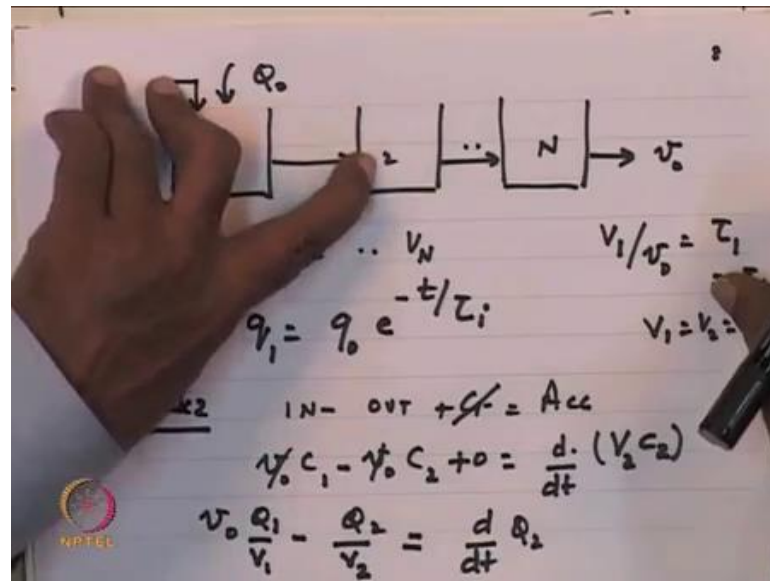 8
Q₀
2 ·· N → v₀
·· V_N V₁/v₀ = τ₁
q₁ = q₀ e^(-t/τᵢ) V₁ = V₂ =
IN - OUT + G = Acc
v₀ C₁ - v₀ C₂ + 0 = d/dt (V₂ C₂)
v₀ Q₁/V₁ - Q₂/V₂ = d/dt Q₂
NPTEL